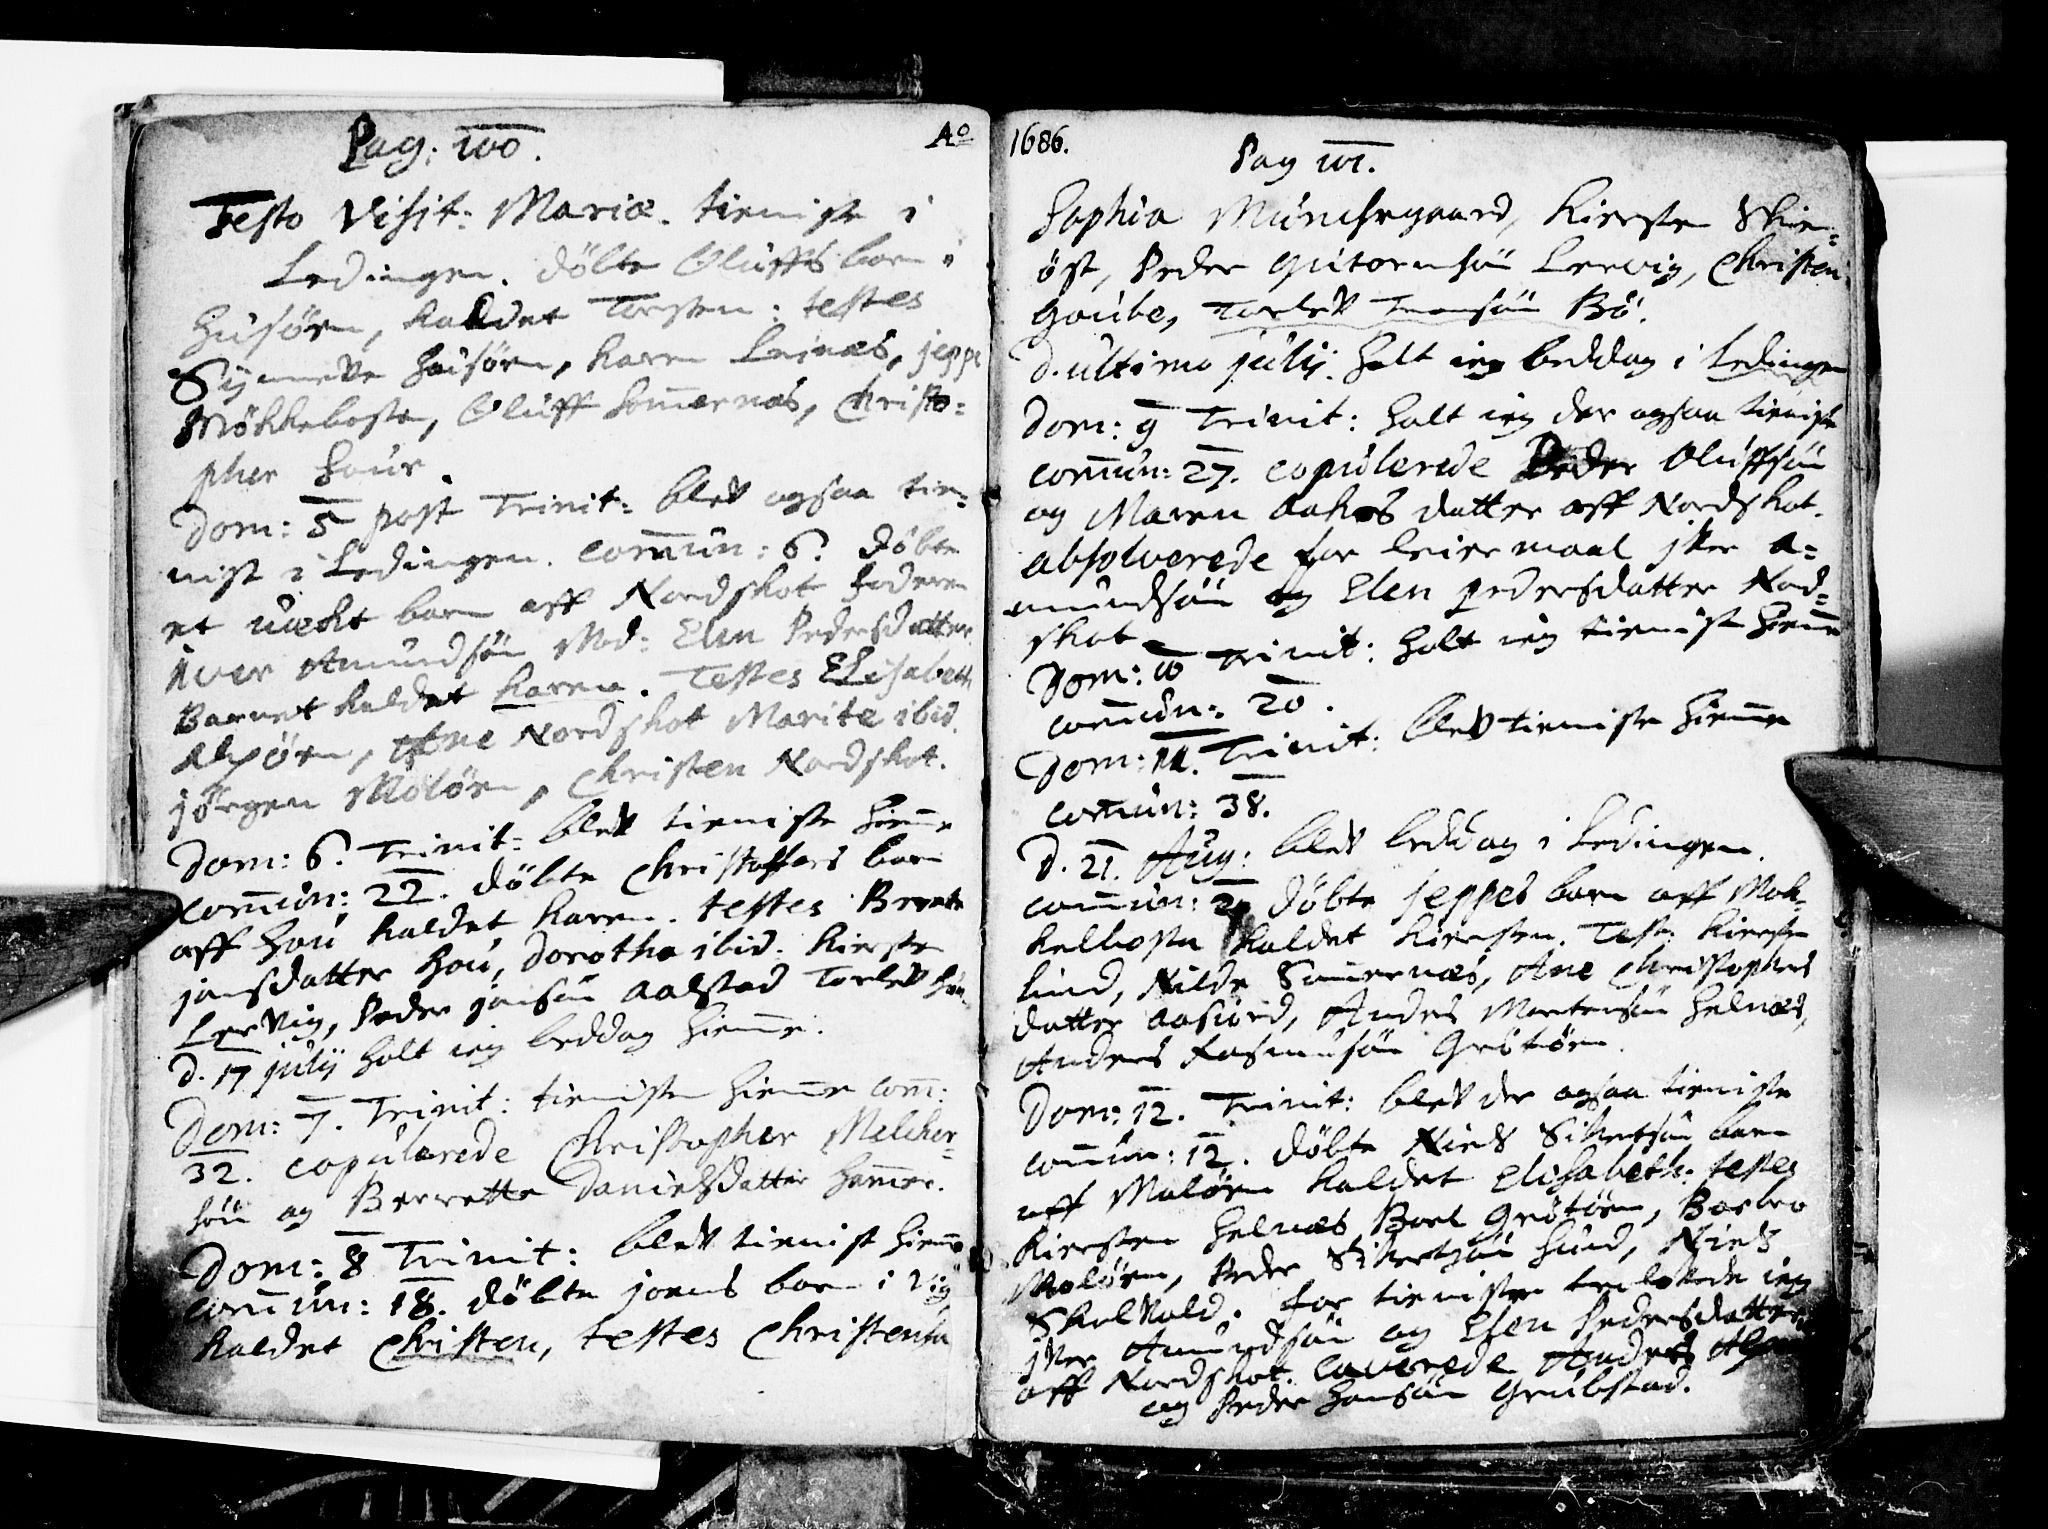 Pag: 100.
Aº
Festo Visit: Mariæ. tieniste i
Ledingen. döbte Oluffs barn i
Husöen, kaldet Torsten: testes
Synneve Husöen, Karen Leinæs, Jeppe
Mökkeboste, Oluff Sommernæs, Christo=
pher Hour.
Dom: 5 post Trinit: blev ogsaa tie=
nist i Ledingen. Commun: 6. döbte
et uækt barn aff Nordskot faderen
Iver Amundsön Mod: Elen Pedersdatter.
Barnet kaldet Karen. Testes Elisabeth
Alpöen, Ane Nordskot Marite ibid.
Jörgen Molöen, Christen Nordskot.
Dom: 6. Trinit: blev tieniste hieme
Commun: 22. döbte Christoffers barn
aff Hou kaldet Karen. testes Berete
Jonsdatter Hou, Dorothea ibid. Kiersten
Lervig, Peder Jonsön Aalstad Torlev
D. 17 Julij holt ieg beddag hieme.
Dom: 7. Trinit: tienisten hieme Com:
32. copulerede Christopher Melcher=
sön og Berrette Danielsdatter Hamer.
Dom: 8 Trinit: blev tienist hieme
Commun: 18. döbte Joens barn i Vig
kaldet Christen, testes Christensen
1686.
Pag 101.
Sophia Munchegaard, Kiersten Skien=
öst, Peder Gutormsön Lervig, Christen
Goube, Torlev Tronsön Bö.
D. ultimo Julij. holt ieg beddag i Ledingen
Dom: 9 Trinit: holt ieg der ogsaa tieniste
Commun: 27. copulerede Peder Oluffsön
og Maren Aakesdatter aff Nordskot.
absolverede for leiermaal Iver A=
mundsön og Elen Pedersdatter Nord=
skot
Dom: 10 Trinit: holt ieg tienist hieme
Commun: 20.
Dom: 11. Trinit: blev tieniste hieme
Commun: 38.
D. 21. Aug: blev beddag i Ledingen.
Commun: döbte Jeppes barn aff Mök=
kelboste kaldet Kiersten. Test: Kiersten
Lund, Nilde Sommernæs, Ane Christophers
datter Aasiord, Anders Mortensön Helnæs,
Anders Rasmusön Grötöen.
Dom: 12. Trinit: blev der ogsaa tieniste
Commun: 12. döbte Niels Sivertsön barn
aff Molöen kaldet Elisabeth: testes
Kiersten Helnæs Boel Grötöen, Barbro
Molöen, Peder Sivertsön Hund, Niels
Skotvold. for tienisten trolovede ieg
Iver Amundsön og Elen Pedersdatter
aff Nordskot. caverede Anders
og Peder Hansön Grubstad.